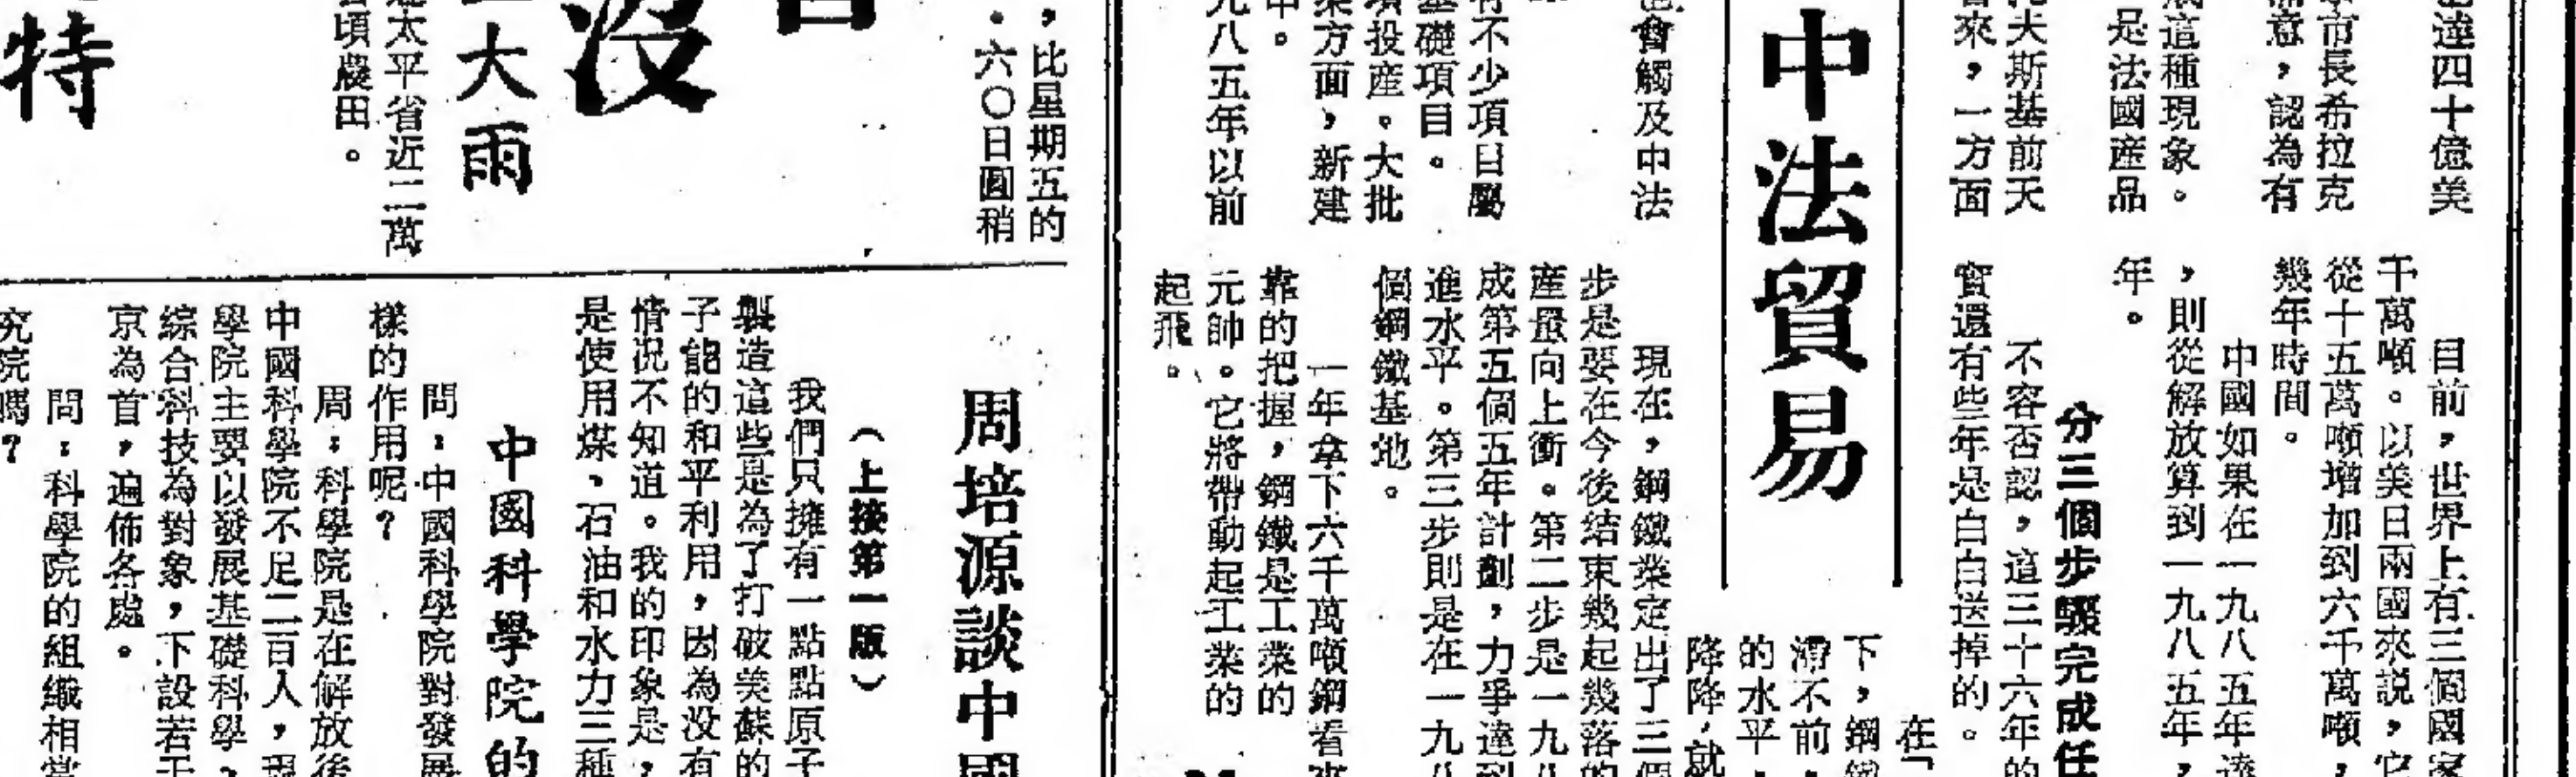 達四十億美
市長希拉克
意，認為有
這種現象。
是法國産品
夫斯基前天
來，一方面
目前，世界上有三個國家
千萬噸。以美日兩國來説，它
從十五萬噸增加到六千萬噸，
幾年時間。
中國如果在一九八五年達
，則從解放算到一九八五年，
年。
分三個步驟完成任
不容否認，這三十六年的
實還有些年是白白送掉的。
在「
下，鋼鐵
滯不前，
的水平，
降降，就
中法貿易
會觸及中法
有不少項目屬
基礎項目。
項投産。大批
業方面，新建
中。
九八五年以前
現在，鋼鐵業定出了三個
步是要在今後结束幾起幾落的
産量向上衝。第二步是一九八
成第五個五年計劃，力爭達到
進水平。第三步則是在一九八
個鋼鐵基地。
一年拿下六千萬噸鋼看來
靠的把握，鋼鐵是工業的
元帥。它將帶動起工業的
起飛。
，比星期五的
．六〇日圓稍
沒
大雨
太平省近二萬
頃農田。
特
周培源談中國
（上接第一版）
我們只擁有一點點原子
製造這些是為了打破美蘇的
子能的和平利用，因為没有
情况不知道。我的印象是，
是使用煤、石油和水力三種
中國科學院的
問：中國科學院對發展
樣的作用呢？
周：科學院是在解放後
中國科學院不足二百人，現
學院主要以發展基礎科學、
綜合科技為對象，下設若干
京為首，遍佈各處。
問：科學院的組織相當
究院嗎？